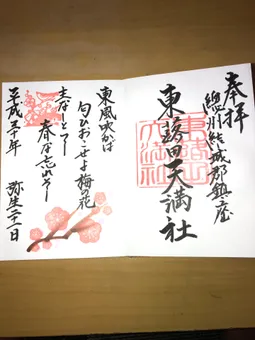 奉拝
總州結城郡鎮座
東蕗田天満社
東蕗田天満社
東風吹かば
匂ひおこせよ梅の花
主なしとて
春な忘れそ
平成三十年 弥生二十一日